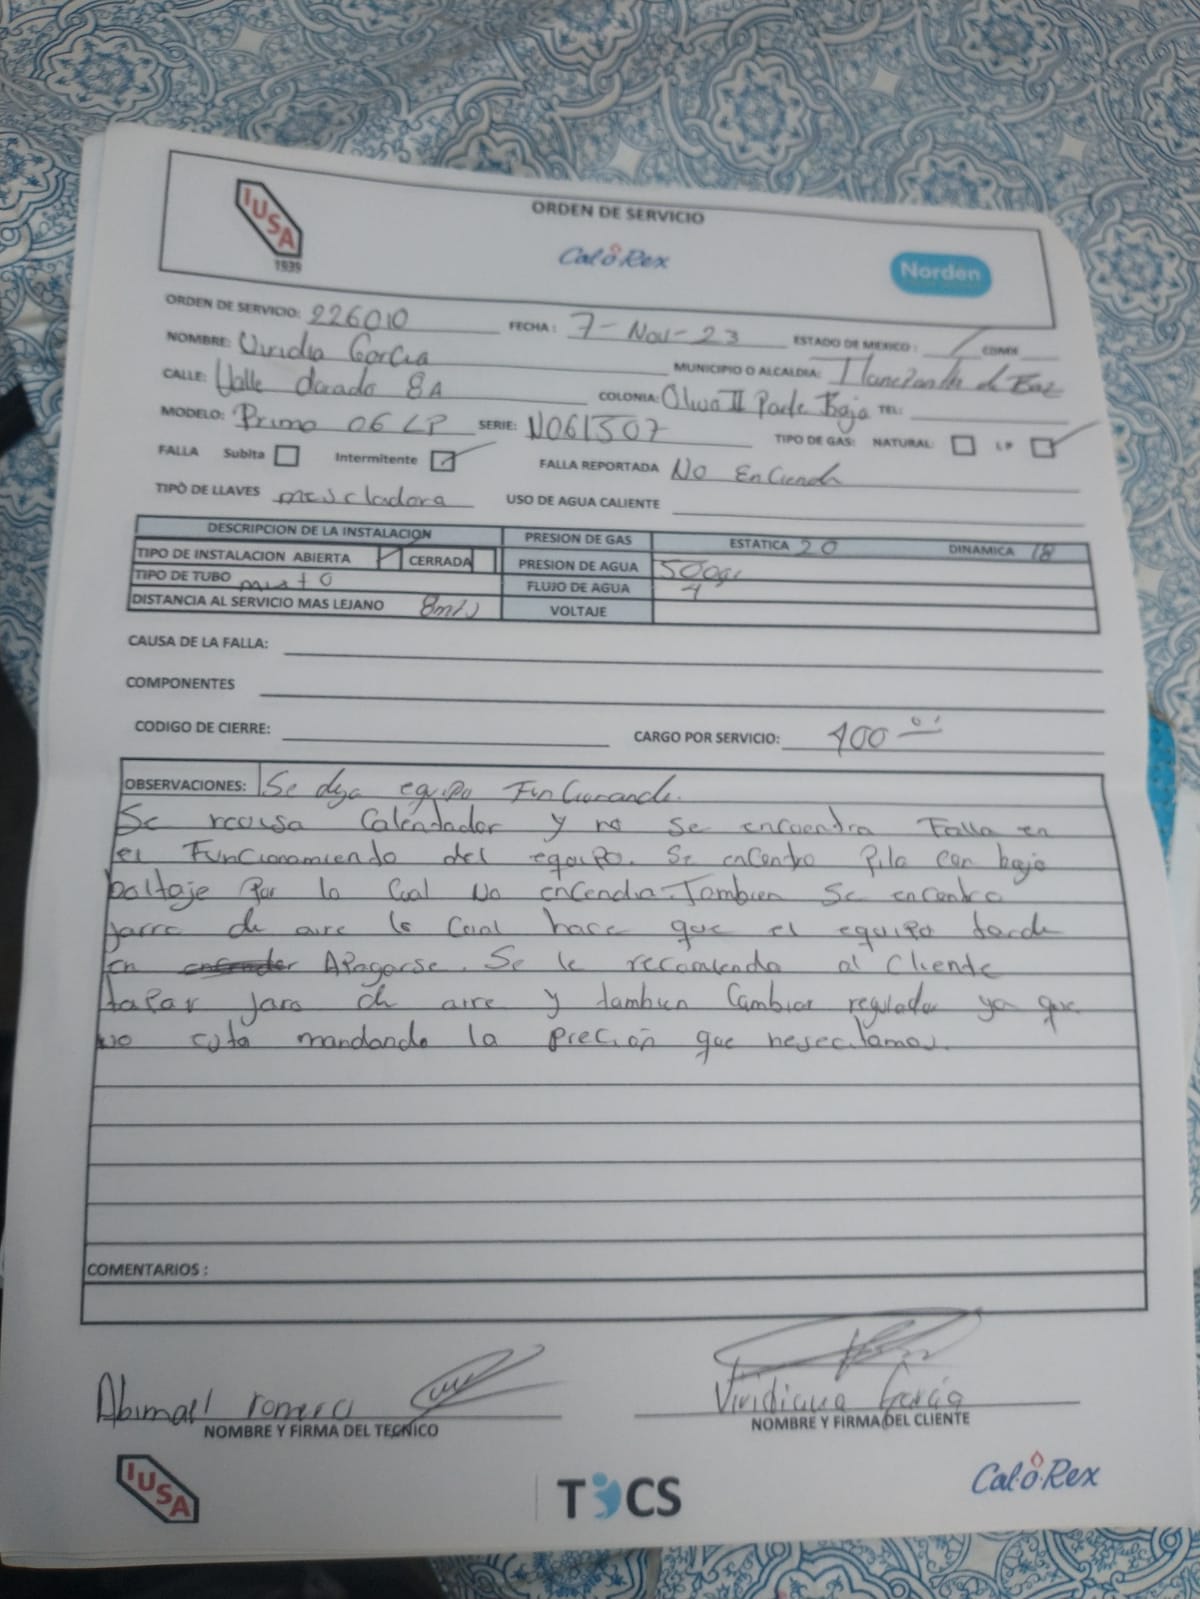 ORDEN DE SERVICIO
IUSA
1939
Cal-o-Rex
Norden
ORDEN DE SERVICIO: 226010 FECHA: 7-Nov-23 ESTADO DE MEXICO: CDMX
NOMBRE: Viridia Garcia MUNICIPIO O ALCALDIA: de Baz
CALLE: Valle dorado 8A COLONIA: Olivo II Parte Baja TEL:
MODELO: Primo 06 LP SERIE: N061507 TIPO DE GAS: NATURAL: LP
FALLA Subita Intermitente FALLA REPORTADA No Enciende
TIPO DE LLAVES mescladora USO DE AGUA CALIENTE
DESCRIPCION DE LA INSTALACION PRESION DE GAS ESTATICA 20 DINAMICA 18
TIPO DE INSTALACION ABIERTA CERRADA PRESION DE AGUA 500gr
TIPO DE TUBO mixto FLUJO DE AGUA 4
DISTANCIA AL SERVICIO MAS LEJANO 8m VOLTAJE
CAUSA DE LA FALLA:
COMPONENTES
CODIGO DE CIERRE: CARGO POR SERVICIO: 400
OBSERVACIONES: Se deja equipo Funcionando.
Se revisa Calentador y no se encuentra Falla en
el Funcionamiendo del equipo. Se encontro Pila con bajo
boltaje Por lo Cual No encendia. Tambien Se encontro
jarro de aire lo Cual hace que el equipo tarde
en Apagarse. Se le recomienda al Cliente
tapar jaro de aire y tambien Cambiar regulador ya que
no esta mandando la preción que nesecitamos.
COMENTARIOS :
Abimael romero Viridiana García
NOMBRE Y FIRMA DEL TECNICO NOMBRE Y FIRMA DEL CLIENTE
IUSA
TICS
Cal-o-Rex